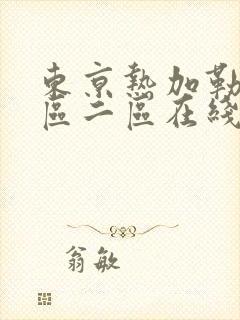 東京熱加勒
區二區在綫
翁敏